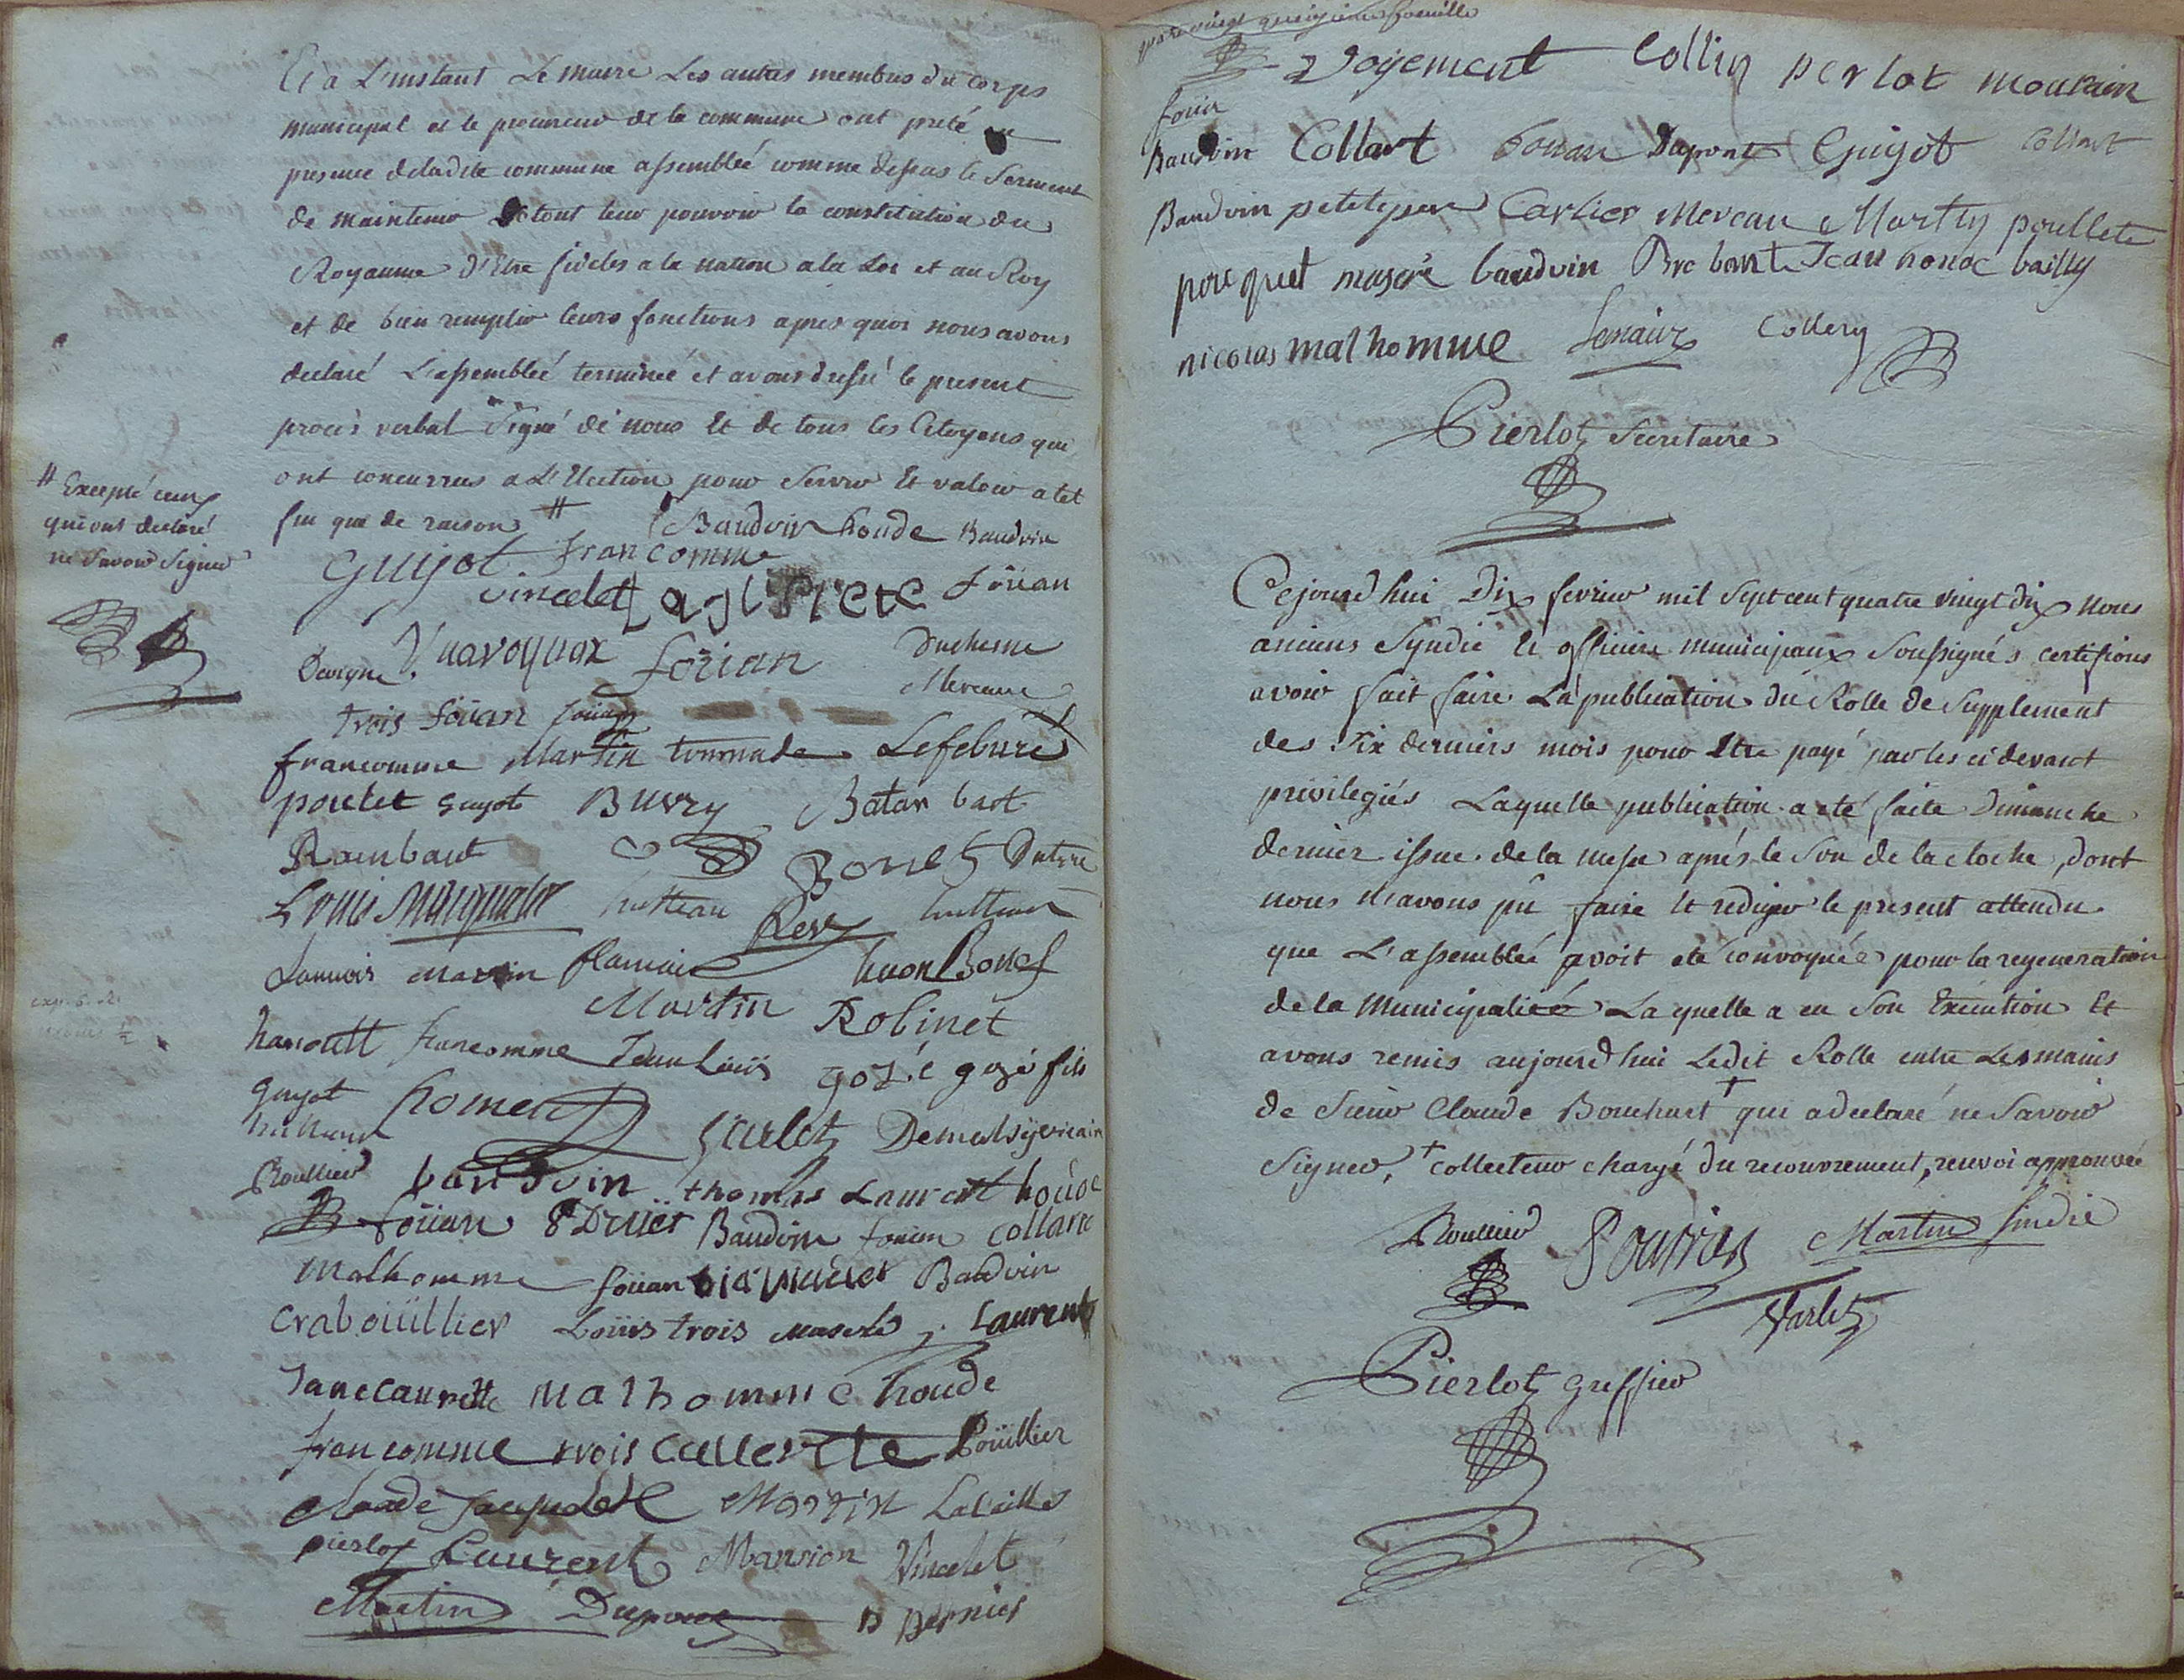 Et a L'instant Le maire Les autres membres du corps
municipal et le procureur de la commune ont preté en
presence de ladite commune assembleé comme dessus le Serment
de maintenir de tout leur pouvoir la constitution du
Royaume d'Etre fideles a la nation a la Loi et au Roy
et de bien remplir leurs fonctions apres quoi nous avons
declaré L'assembleé terminée et avons dressé le present
procès verbal Signé de nous Et de tous les Citoyens qui
ont concurrus a L'Election pour Servir Et valoir a tel
fin que de raison #
# Excepté ceux
qui ont declaré
ne Savoir Signer
Baudvin houde Baudvin
Guyot francomme
vincelet Lagl foüan
Devigne foüan Duchesne
Merceau
trois foüan foüan
francomme Martin tonnade Lefebure
poulet guyot Buvry Batar bart
Rambaut Bonet Dutru
Louis hutteau Rey hutteau
Lannois martin flamain huon Bonef
Martin Robinet
hanoutt francomme Jean Louis gozé gozé fils
guyot homen
hutteau Varlet
Roullier baudvin thomas Laurent houde
foüan Baudvin foüan Collart
Malhomme foüan Baudvin
Craboüillier Loüis trois Mascré Laurent
Jane caurette malhomme houde
francomme trois Poüillier
Claude Martin
pierlot Laurent Marsion Vincelet
Martin Dupont B Bernier
quatre vingt quinzieme feuille
Voyement Collin perlot mourain
fouan
Baudvin Collart fouan Dupont Guyot Collart
Baudvin petitjean Carlier Merceau Martin poullete
porcquet mascré baudvin Brabant Jean bailly
nicolas malhomme Lemaire Collery
Pierlot Secretaire
Cejourd'hui Dix fevrier mil Sept cent quatre vingt dix Nous
anciens Syndic et officiers municipaux Soussignés certifions
avoir fait faire La publication du Rolle de Supplement
des Six derniers mois pour Etre payé par les ci devant
privilegiés Laquelle publication a eté faite Dimanche
dernier issue de la messe après le Son de la cloche, dont
nous n'avons pû faire Et rediger le present attendu
que L'assembleé avoit eté Convoquée pour la regeneration
de la Municipalité Laquelle a eu Son Execution Et
avons remis aujourd'hui Ledit Rolle entre Les mains
de Sieur Claude Bouchart + qui a declaré ne Savoir
Signer, + collecteur chargé du recouvrement, renvoi approuvée
Roullier Martin Sindic
Varlet
Pierlot Greffier